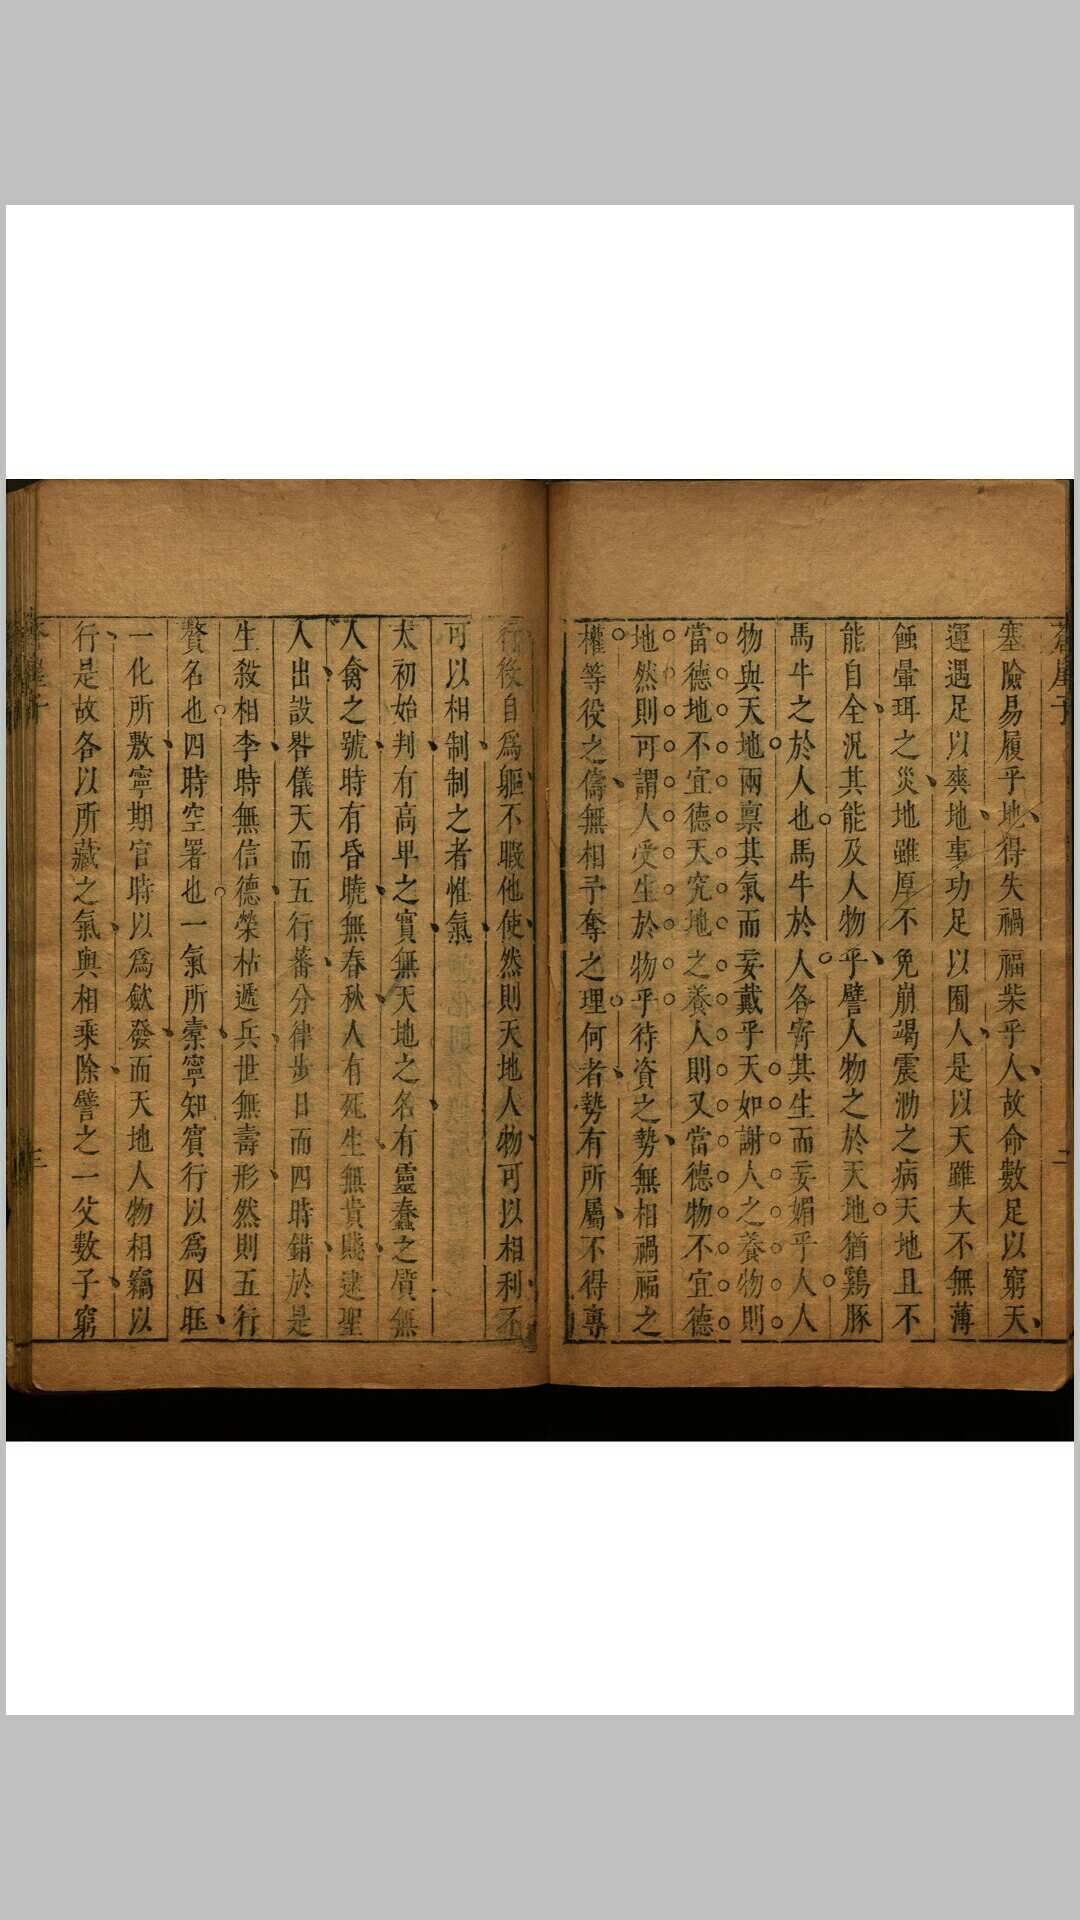 蒼崖子
二
塞險易履乎地得失禍福柴乎人故命數足以窮天
運遇足以爽地事功足以囿人是以天雖大不無薄
蝕暈珥之災地雖厚不免崩竭震泐之病天地且不
能自全況其能及人物乎譬人物之於天地猶鷄豚
馬牛之於人也馬牛於人各寄其生而妄媚乎人人
物與天地兩禀其氣而妄戴乎天如謝人之養物則
當德地不宜德天究地之養人則又當德物不宜德
地然則可謂人受生於物乎待資之勢無相禍福之
權等役之儔無相予奪之理何者勢有所屬不得專
行後自爲軀不暇他使然則天地人物可以相利不
可以相制制之者惟氣
太初始判有高卑之實無天地之名有靈蠢之質無
人禽之號時有昏曉無春秋人有死生無貴賤逮聖
人出設畧儀天而五行蕃分律步日而四時錯於是
生殺相李時無信德榮枯遞兵世無壽形然則五行
贅名也四時空署也一氣所橐寧知賓行以爲因
一化所敷寧期官時以爲歛發而天地人物相竊以
行是故各以所藏之氣與相乘除譬之一父數子窮
三